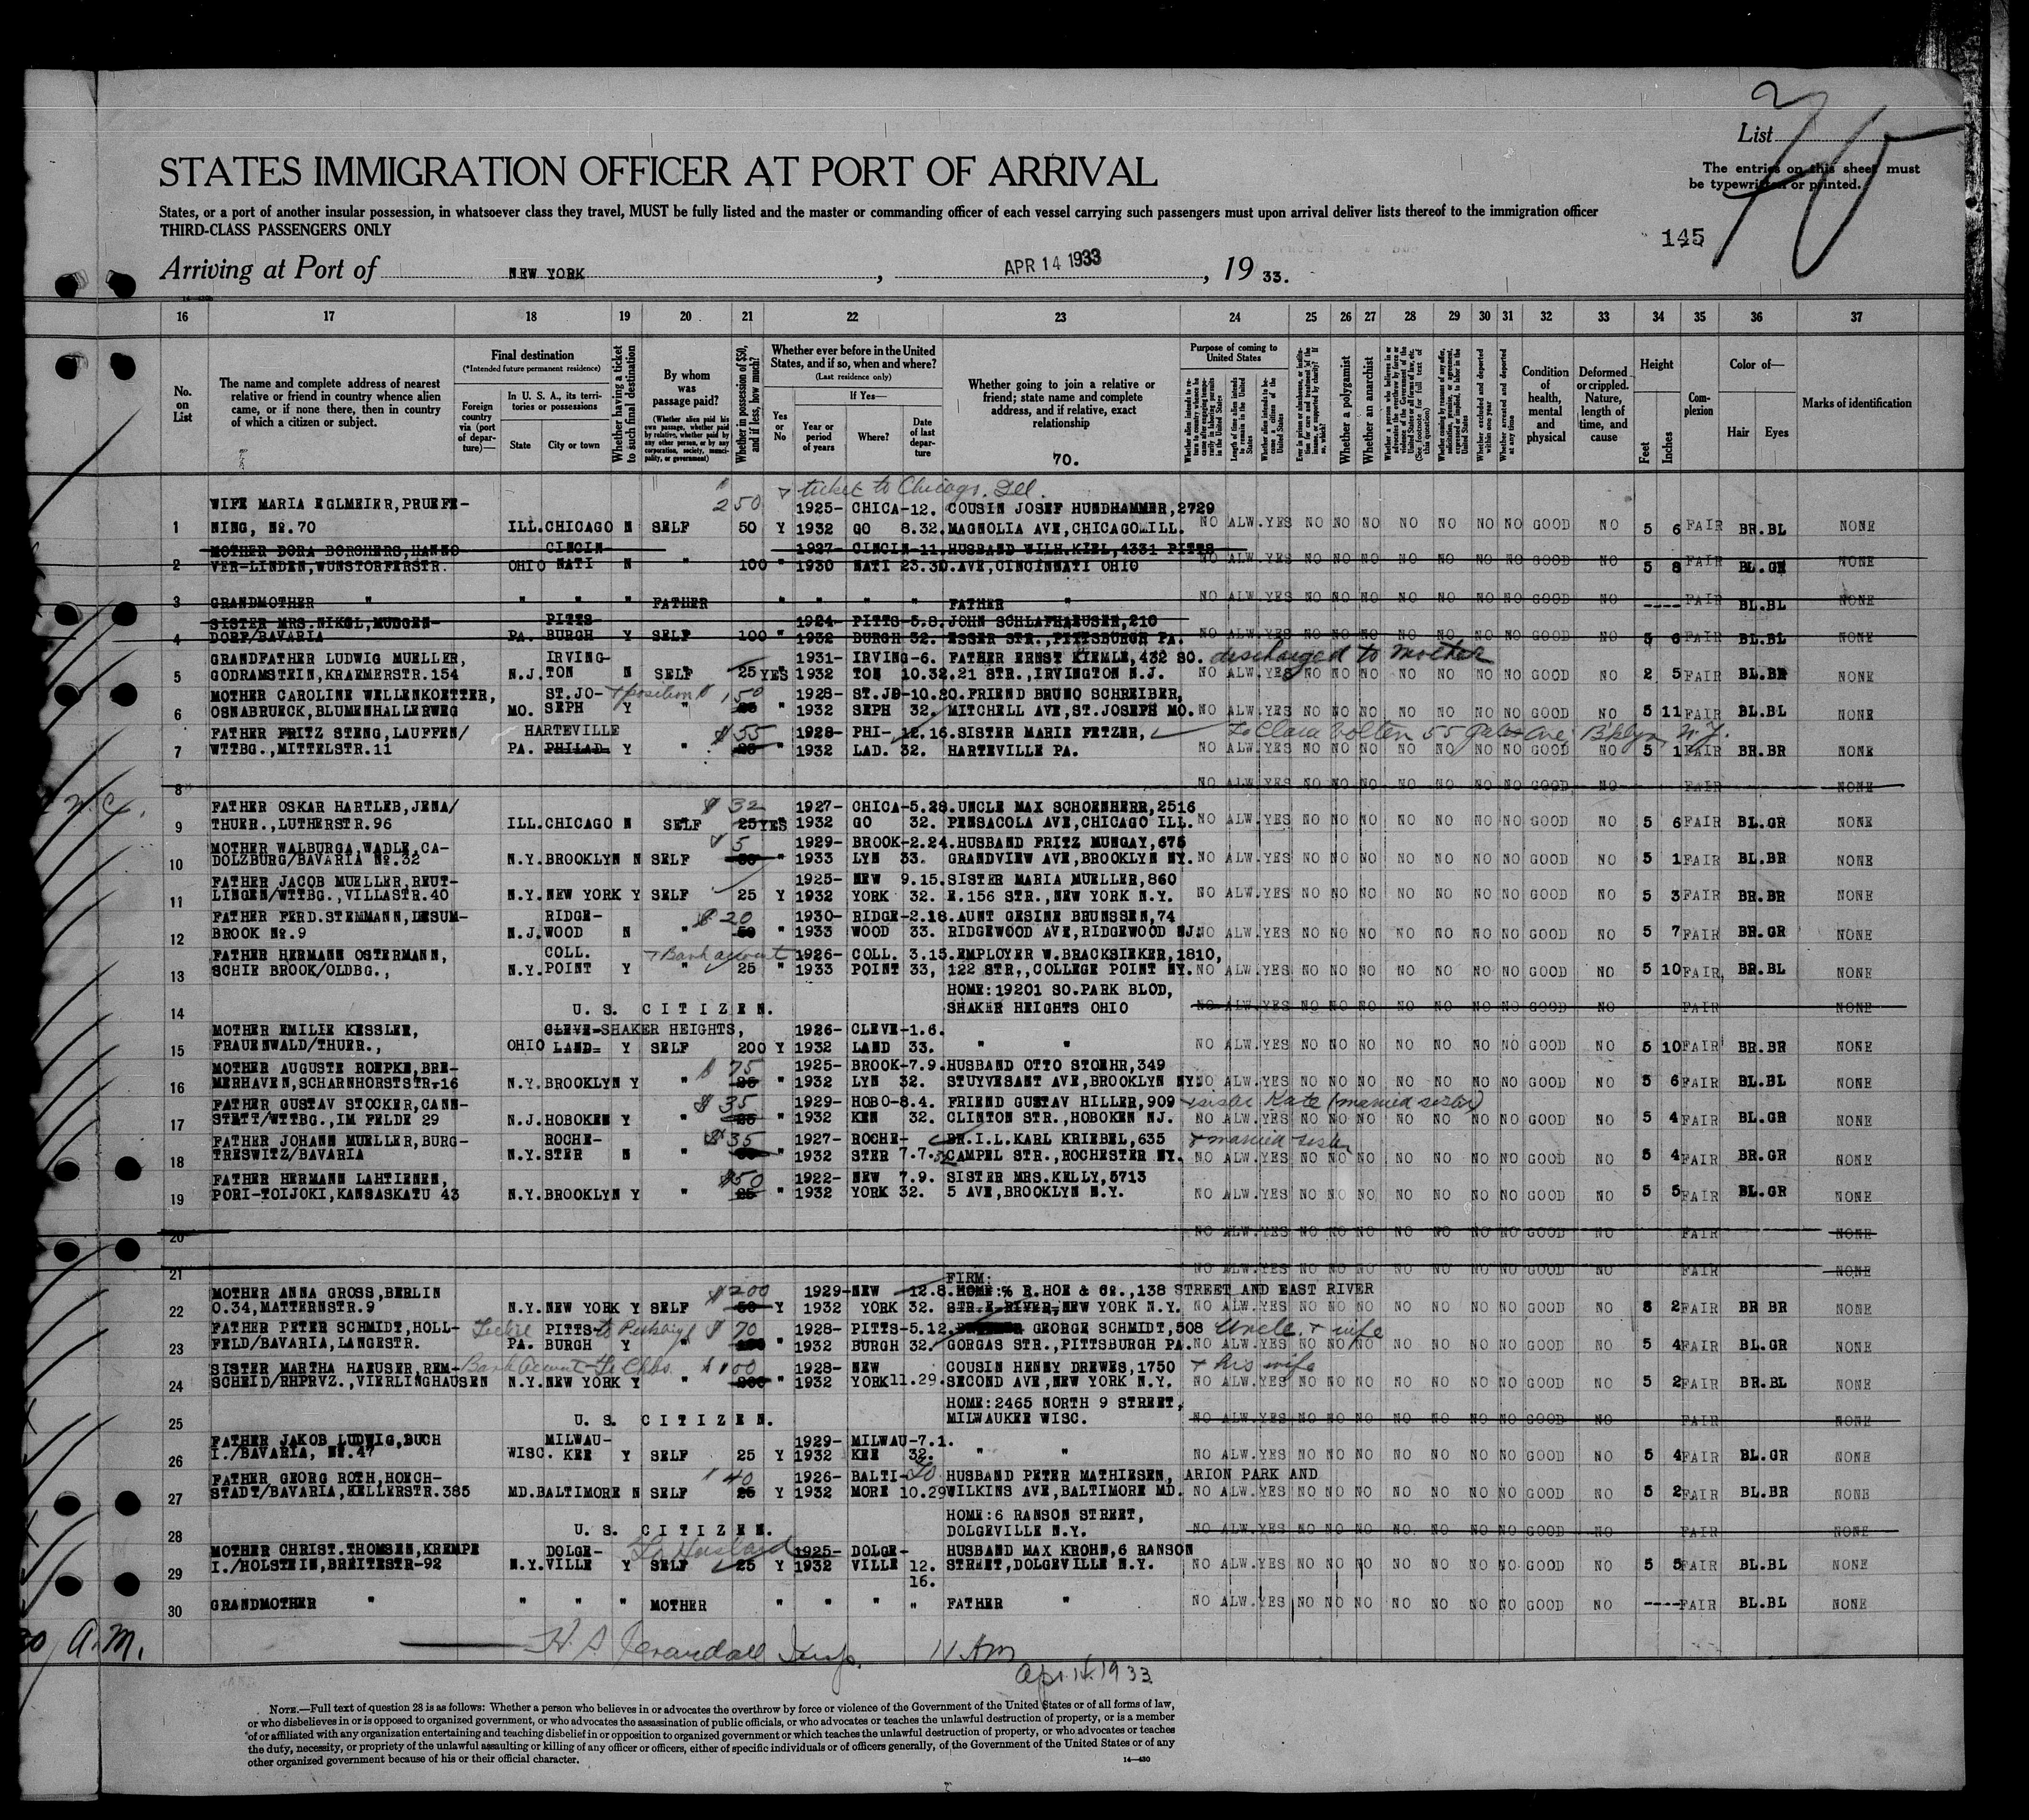 List
70
The entries on this sheet must
be typewritten or printed.
STATES IMMIGRATION OFFICER AT PORT OF ARRIVAL
States, or a port of another insular possession, in whatsoever class they travel, MUST be fully listed and the master or commanding officer of each vessel carrying such passengers must upon arrival deliver lists thereof to the immigration officer
THIRD-CLASS PASSENGERS ONLY
145
Arriving at Port of NEW YORK, APR 14 1933, 19 33.
16 17 18 19 20 21 22 23 24 25 26 27 28 29 30 31 32 33 34 35 36 37
No. on List
The name and complete address of nearest relative or friend in country whence alien came, or if none there, then in country of which a citizen or subject.
Final destination
(*Intended future permanent residence)
Foreign country via (port of departure)—
In U. S. A., its territories or possessions
State City or town
Whether having a ticket to such final destination
By whom was passage paid?
(Whether alien paid his own passage, whether paid by relative, whether paid by any other person, or by any corporation, society, municipality, or government)
Whether in possession of $50, and if less, how much?
Whether ever before in the United States, and if so, when and where?
(Last residence only)
Yes or No
If Yes—
Year or period of years
Where?
Date of last departure
Whether going to join a relative or friend; state name and complete address, and if relative, exact relationship
70.
Purpose of coming to United States
Whether a polygamist
Whether an anarchist
Condition of health, mental and physical
Deformed or crippled. Nature, length of time, and cause
Height
Feet Inches
Complexion
Color of—
Hair Eyes
Marks of identification
250 ticket to Chicago. Ill.
WIFE MARIA EGLMEIER, PRUEFE- 1925- CHICA-12. COUSIN JOSEF HUNDHAMMER, 2729
1 NING, No. 70 ILL. CHICAGO N SELF 50 Y 1932 GO 8.32. MAGNOLIA AVE, CHICAGO ILL. NO ALW. YES NO NO NO NO NO NO NO GOOD NO 5 6 FAIR BR.BL NONE
MOTHER DORA BORCHERS, HANNO CINCIN- 1927- CINCIN-11. HUSBAND WILH. KIEL, 4331 PITTS
2 VER-LINDEN, WUNSTORFERSTR. OHIO NATI N " 100 " 1930 NATI 23.30. AVE, CINCINNATI OHIO NO ALW. YES NO NO NO NO NO NO NO GOOD NO 5 8 FAIR BL.GR NONE
3 GRANDMOTHER " " " " FATHER " " " " FATHER " NO ALW. YES NO NO NO NO NO NO NO GOOD NO ---- FAIR BL.BL NONE
SISTER MRS. NIKOL, MUGGEN- PITTS- 1924- PITTS-5.8. JOHN SCHLAFHAEUSER, 210
4 DORF/BAVARIA PA. BURGH Y SELF 100 " 1932 BURGH 32. ESSER STR., PITTSBURGH PA. NO ALW. YES NO NO NO NO NO NO NO GOOD NO 5 6 FAIR BL.BL NONE
GRANDFATHER LUDWIG MUELLER, IRVING- 1931- IRVING-6. FATHER ERNST KIEMLE, 432 SO. discharged to mother
5 GODRAMSTEIN, KRAEMERSTR. 154 N.J. TON N SELF 25 YES 1932 TON 10.32. 21 STR., IRVINGTON N.J. NO ALW. YES NO NO NO NO NO NO NO GOOD NO 2 5 FAIR BL.BR NONE
MOTHER CAROLINE WELLENKOETTER, ST. JO- + position $ 150 1928- ST.JO-10.20. FRIEND BRUNO SCHREIBER,
6 OSNABRUECK, BLUMENHALLERWEG MO. SEPH Y " 25 " 1932 SEPH 32. MITCHELL AVE, ST. JOSEPH MO. NO ALW. YES NO NO NO NO NO NO NO GOOD NO 5 11 FAIR BL.BL NONE
FATHER FRITZ STENG, LAUFFEN/ HARTEVILLE $ 55 1928- PHI- 12.16. SISTER MARIE FETZER, To Clara Bolten 55 Gates Ave. Bklyn, N.Y.
7 WTTBG., MITTELSTR. 11 PA. PHILAD- Y " 25 " 1932 LAD. 32. HARTEVILLE PA. NO ALW. YES NO NO NO NO NO NO NO GOOD NO 5 1 FAIR BR.BR NONE
8 NO ALW. YES NO NO NO NO NO NO NO GOOD NO FAIR NONE
FATHER OSKAR HARTLEB, JENA/ $ 32 1927- CHICA-5.28. UNCLE MAX SCHOENHERR, 2516
9 THUER., LUTHERSTR. 96 ILL. CHICAGO N SELF 25 YES 1932 GO 32. PENSACOLA AVE, CHICAGO ILL. NO ALW. YES NO NO NO NO NO NO NO GOOD NO 5 6 FAIR BL.GR NONE
MOTHER WALBURGA WADLE, CA- $ 5 1929- BROOK-2.24. HUSBAND FRITZ MUNGAY, 675
10 DOLZBURG/BAVARIA No. 32 N.Y. BROOKLYN N SELF 50 " 1933 LYN 33. GRANDVIEW AVE, BROOKLYN NY. NO ALW. YES NO NO NO NO NO NO NO GOOD NO 5 1 FAIR BL.BR NONE
FATHER JACOB MUELLER, REUT- 1925- NEW 9.15. SISTER MARIA MUELLER, 860
11 LINGEN/WTTBG., VILLASTR. 40 N.Y. NEW YORK Y SELF 25 Y 1932 YORK 32. E. 156 STR., NEW YORK N.Y. NO ALW. YES NO NO NO NO NO NO NO GOOD NO 5 3 FAIR BR.BR NONE
FATHER FERD. STEMMANN, LESUM- RIDGE- $ 20 1930- RIDGE-2.18. AUNT GESINE BRUNSSEN, 74
12 BROOK No. 9 N.J. WOOD N " 50 " 1933 WOOD 33. RIDGEWOOD AVE, RIDGEWOOD NJ. NO ALW. YES NO NO NO NO NO NO NO GOOD NO 5 7 FAIR BR.GR NONE
FATHER HERMANN OSTERMANN, COLL. + Bank account 1926- COLL. 3.15. EMPLOYER W. BRACKSIEKER, 1810,
13 SCHIE BROOK/OLDBG., N.Y. POINT Y " 25 " 1933 POINT 33, 122 STR., COLLEGE POINT NY. NO ALW. YES NO NO NO NO NO NO NO GOOD NO 5 10 FAIR, BR.BL NONE
HOME: 19201 SO. PARK BLOD,
14 U. S. CITIZEN. SHAKER HEIGHTS OHIO NO ALW. YES NO NO NO NO NO NO NO GOOD NO FAIR NONE
MOTHER EMILIE KESSLER, CLEVE- SHAKER HEIGHTS, 1926- CLEVE-1.6.
15 FRAUENWALD/THUER., OHIO LAND- Y SELF 200 Y 1932 LAND 33. " " NO ALW. YES NO NO NO NO NO NO NO GOOD NO 5 10 FAIR BR.BR NONE
MOTHER AUGUSTE ROEPKE, BRE- $ 75 1925- BROOK-7.9. HUSBAND OTTO STOEHR, 349
16 MERHAVEN, SCHARNHORSTSTR. 16 N.Y. BROOKLYN Y " 25 " 1932 LYN 32. STUYVESANT AVE, BROOKLYN NY. NO ALW. YES NO NO NO NO NO NO NO GOOD NO 5 6 FAIR BL.BL NONE
FATHER GUSTAV STOCKER, CANN- $ 35 1929- HOBO-8.4. FRIEND GUSTAV HILLER, 909 sister Kate (married sister)
17 STETT/WTTBG., IM FELDE 29 N.J. HOBOKEN Y " 25 " 1932 KEN 32. CLINTON STR., HOBOKEN NJ. NO ALW. YES NO NO NO NO NO NO NO GOOD NO 5 4 FAIR BL.GR NONE
FATHER JOHANN MUELLER, BURG- ROCHE- $ 35 1927- ROCHE- BR. I. L. KARL KRIEBEL, 635 + married sister
18 TRESWITZ/BAVARIA N.Y. STER N " " 1932 STER 7.7.32 CAMPEL STR., ROCHESTER NY. NO ALW. YES NO NO NO NO NO NO NO GOOD NO 5 4 FAIR BR.GR NONE
FATHER HERMANN LAHTIENEN, $50 1922- NEW 7.9. SISTER MRS. KELLY, 5713
19 PORI-TOIJOKI, KANSASKATU 43 N.Y. BROOKLYN Y " 25 " 1932 YORK 32. 5 AVE, BROOKLYN N.Y. NO ALW. YES NO NO NO NO NO NO NO GOOD NO 5 5 FAIR BL.GR NONE
20 NO ALW. YES NO NO NO NO NO NO NO GOOD NO FAIR NONE
21 NO ALW. YES NO NO NO NO NO NO NO GOOD NO FAIR NONE
FIRM:
MOTHER ANNA GROSS, BERLIN $200 1929- NEW 12.8. HOME: % R. HOE & Co., 138 STREET AND EAST RIVER
22 O.34, MATTERNSTR. 9 N.Y. NEW YORK Y SELF 50 Y 1932 YORK 32. STR. E. RIVER, NEW YORK N.Y. NO ALW. YES NO NO NO NO NO NO NO GOOD NO 6 2 FAIR BR BR NONE
FATHER PETER SCHMIDT, HOLL- PITTS- $ 70 1928- PITTS-5.12. GEORGE SCHMIDT, 508 Uncle + wife
23 FELD/BAVARIA, LANGESTR. PA. BURGH Y " " 1932 BURGH 32. GORGAS STR., PITTSBURGH PA. NO ALW. YES NO NO NO NO NO NO NO GOOD NO 5 4 FAIR BL.GR NONE
SISTER MARTHA HAEUSER, REM- Bank account $ 100 1928- NEW COUSIN HENRY DREWES, 1750 + his wife
24 SCHEID/RHPRVZ., VIERLINGHAUSEN N.Y. NEW YORK Y " 200 " 1932 YORK 11.29. SECOND AVE, NEW YORK N.Y. NO ALW. YES NO NO NO NO NO NO NO GOOD NO 5 2 FAIR BR.BL NONE
HOME: 2465 NORTH 9 STREET,
25 U. S. CITIZEN. MILWAUKEE WISC. NO ALW. YES NO NO NO NO NO NO NO GOOD NO FAIR NONE
FATHER JAKOB LUDWIG, BUCH MILWAU- 1929- MILWAU-7.1.
26 I./BAVARIA, No. 47 WISC. KEE Y SELF 25 Y 1932 KEE 32. " " NO ALW. YES NO NO NO NO NO NO NO GOOD NO 5 4 FAIR BL.GR NONE
FATHER GEORG ROTH, HOECH- $ 40 1926- BALTI- To HUSBAND PETER MATHIESEN, ARION PARK AND
27 STADT/BAVARIA, KELLERSTR. 385 MD. BALTIMORE N SELF 25 Y 1932 MORE 10.29 WILKINS AVE, BALTIMORE MD. NO ALW. YES NO NO NO NO NO NO NO GOOD NO 5 2 FAIR BL.BR NONE
HOME: 6 RANSON STREET,
28 U. S. CITIZEN. DOLGEVILLE N.Y. NO ALW. YES NO NO NO NO NO NO NO GOOD NO FAIR NONE
MOTHER CHRIST. THOMSEN, KREMPE DOLGE- To Husband 1925- DOLGE- HUSBAND MAX KROHN, 6 RANSON
29 I./HOLSTEIN, BREITESTR-92 N.Y. VILLE Y SELF 25 Y 1932 VILLE 12. STREET, DOLGEVILLE N.Y. NO ALW. YES NO NO NO NO NO NO NO GOOD NO 5 5 FAIR BL.BL NONE
16.
30 GRANDMOTHER " " " " MOTHER " " " " FATHER " NO ALW. YES NO NO NO NO NO NO NO GOOD NO ---- FAIR BL.BL NONE
A.M. H. S. Crandall Insp. 11 AM
Apr. 14. 1933
NOTE.—Full text of question 28 is as follows: Whether a person who believes in or advocates the overthrow by force or violence of the Government of the United States or of all forms of law,
or who disbelieves in or is opposed to organized government, or who advocates the assassination of public officials, or who advocates or teaches the unlawful destruction of property, or is a member
of or affiliated with any organization entertaining and teaching disbelief in or opposition to organized government or which teaches the unlawful destruction of property, or who advocates or teaches
the duty, necessity, or propriety of the unlawful assaulting or killing of any officer or officers, either of specific individuals or of officers generally, of the Government of the United States or of any
other organized government because of his or their official character.
14—430